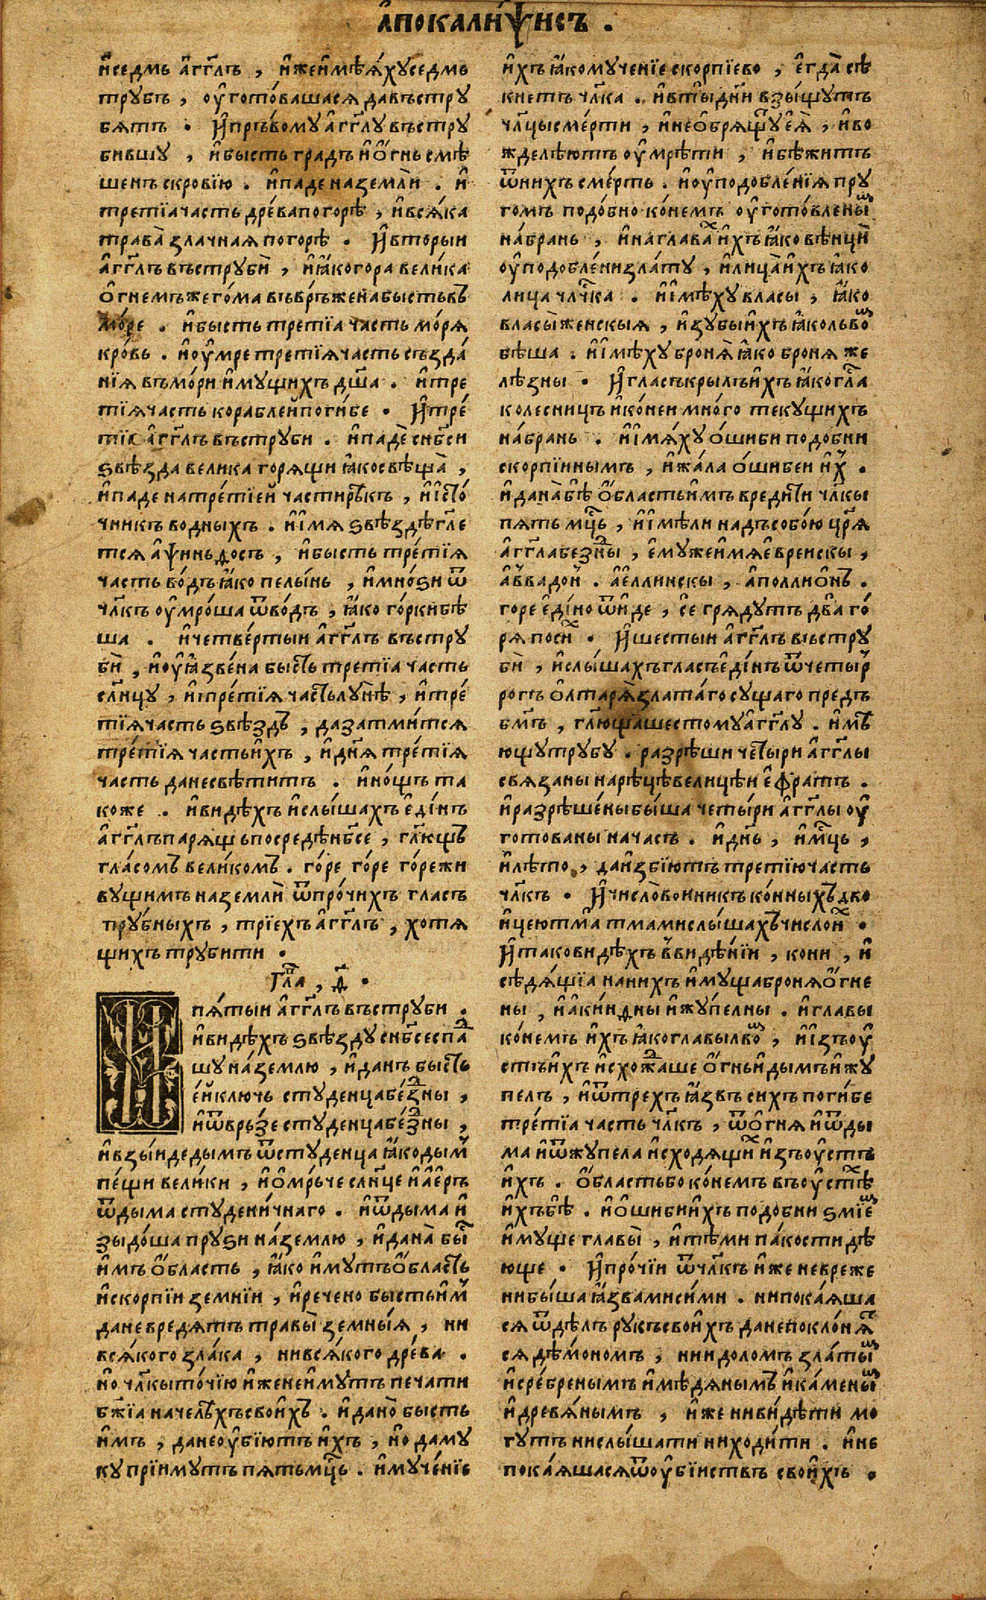 а҆покали́ѱисъ .
и҆седмь а҆гг҃лъ , и҆жеи҆мѣѧ́хуседмь
трубъ , оу҆гото́вашасѧ давъстру
бѧтъ . И҆пръ́вому а҆гг҃лу въстру
бившу , и҆бысть градъ и҆о҆́гнь смѣ
шенъ скровїю . и҆паде наземли . и҆
третїачасть дре́ва погорѣ , и҆всѧ́ка
трава̀ злачнаѧ погорѣ . И҆вторыи
а҆гг҃лъ въструбѝ , и҆ꙗ҆́когора велика
о҆гнемъжего́ма въврь́жена бысть въ
мо́ре . и҆бысть третїа часть мо́рѧ
кро́вь . и҆оу҆́мре третїѧчасть създа́
нїѧ въмо́ри и҆мущихъ дш҃а . и҆тре
тїѧчасть кораблей поги́бе . И҆тре́
тїи а҆гг҃лъ въструби . и҆падѐ снб҃си
ѕвѣзда велика горѧщи ꙗ҆́косвѣща̀ ,
и҆паде на тре́тїей части рѣкъ , и҆и҆сто́
чникъ водныхъ . и҆и҆мѧ ѕвѣздѣ гл҃е
тсѧ а҆ѱиньѳосъ , и҆бысть тре́тїѧ
часть во́дъ ꙗ҆ко пелы́нь , и҆мно́ѕи ѿ
чл҃къ оу҆мро́ша ѿво́дъ , ꙗ҆ко го́рки бѣ
ша . и҆четве́ртыи а҆гг҃лъ въстру
бѝ , и҆оу҆ꙗ҆́звена бысть третїа часть
сл҃нцу , и҆тре́тїѧ часть лунѣ , и҆тре́
тїѧ часть ѕвѣздъ , да затмитсѧ
тре́тїѧ часть и҆́хъ , и҆дн҃ѧ тре́тїѧ
часть да не свѣтитъ . и҆но́щь та
коже . и҆видѣхъ и҆слышахъ е҆ди́нъ
а҆гг҃лъ парѧщь посредѣ нб҃се , гл҃ющь
гла́сомъ вели́комъ . го́ре го́ре го́ре жи
вущимъ на земли ѿпро́чихъ гласъ
тру́бныхъ , трїе́хъ а҆гг҃лъ , хотѧ
щихъ трубити .
Гла , ѳ҃ .
И пѧ́тыи а҆гг҃лъ въструби .
и҆видѣхъ ѕвѣзду снб҃се спа́д
шу на́землю , и҆данъ бысть
е҆й ключь студенца бе́здны ,
и҆ѿврь́зе студенца бе́здны ,
и҆взы́иде дымъ ѿстуденца ꙗ҆ко дым
пе́щи вели́ки , и҆о҆мрь́че сл҃нце и҆а҆́еръ
ѿдыма студени́чнаго . и҆ѿдыма и҆
зыдо́ша прузи на́землю , и҆дана̀ бы́
и҆мъ о҆́бласть , ꙗ҆ко и҆́мутъ о҆́бласть
и҆скорпїи земнїи , и҆речено бысть и҆м
да не вредѧ́тъ травы̀ земны́ѧ , ни
всѧ́кого зла́ка , ни всѧ́кого дре́ва .
но чл҃кы то́чїю и҆же не и҆мутъ печати
бж҃їа на челѣ́хъ свои́хъ . и҆дано̀ бысть
и҆мъ , да не оу҆бїю́тъ и҆́хъ , но да му
ку прїи́мутъ пѧть мц҃ь . и҆муче́нїе
и҆́хъ ꙗ҆ко муче́нїе скорпїево , е҆гда̀ сѣ
кнетъ чл҃ка . и҆вты́и дн҃и взы́щутъ
чл҃цы сме́рти , и҆не о҆брѧ́щуеѧ̀ , и҆во
жделѣ́ютъ оу҆мрѣ́ти , и҆бѣжи́тъ
ѿнихъ сме́рть . и҆оу҆подобле́нїѧ пру
гомъ подо́бно ко́немъ оу҆гото́вленым
на́брань , и҆на глава́х и҆́хъ ꙗ҆ко вѣнцѝ
оу҆подо́блени зла́ту , и҆лица̀ и҆́хъ ꙗ҆ко
лица чл҃чка . и҆и҆мѣ́ху власы , ꙗ҆ко
власы̀ же́нскыѧ , и҆зу́бы и҆́хъ ꙗ҆ко львом
бѣша . и҆и҆мѣ́ху бронѧ̀ ꙗ҆ко бронѧ же
лѣ́зны . И҆гласъ крылъ и҆́хъ ꙗ҆ко гла
колесницъ и҆ко́неи мно́го текущихъ
на́брань . и҆и҆мѧ́ху о҆́шиби подобни
скорпїинымъ , и҆жа́ла о҆́шибеи и҆х .
и҆дана̀ бѣ̀ о҆́бласть и҆́мъ вредити чл҃кы
пѧть мц҃ь , и҆и҆мѣли надъ собою цр҃ѧ
а҆гг҃ла бе́здны , е҆мужеи҆мѧ е҆вреискы ,
а҆ввадо́н . а҆е҆ллинскы , а҆поллио́нъ .
горе е҆ди́но ѿи́де , се грѧду́тъ два го́
рѧ по си́х . И҆шестыи а҆гг҃лъ въстру
бѝ , и҆слышахъ гласъ е҆ди́нъ ѿчеты́р
рогъ о҆лтарѧ̀ злата́го сущаго предъ
бг҃мъ , гл҃ющашестому а҆гг҃лу . и҆мѣ
ющу трубу . разрѣши четыри а҆гг҃лы
свѧ́заны на рѣцѣ вели́цѣи е҆фра́тъ .
и҆разрѣше́ны бы́ша четы́ри а҆гг҃лы оу҆
гото́ваны на ча́съ . и҆днь , и҆мц҃ь ,
и҆лѣто , да и҆збїю́тъ третїю часть
чл҃къ . И҆число̀ воиникъ ко́нныхъ дво
и҆цею тма̀ тмами слы́шахъ число и҆х .
И҆тако видѣхъ ввидѣ́нїи , кони , и҆
сѣдѧщїа на нихъ и҆́муща бронѧ о҆́гне
ны , и҆а҆кинѳны и҆жу́пелны . и҆главы
ко́немъ и҆́хъ ꙗ҆ко главы льво́м , и҆и҆зъ оу҆
стъ и҆́хъ и҆схожда́ше о҆́гнь и҆ дымъ и҆ жу
пелъ , и҆ѿтре́хъ ꙗ҆звъ сихъ погибе
тре́тїа часть чл҃къ , ѿо҆́гнѧ и҆ѿды
ма и҆ѿжу́пела и҆сходѧщих и҆зъ оу҆стъ
и҆́хъ . о҆́бласть бо ко́немъ въ оу҆стѣх
и҆́хъ бѣ̀ . и҆о҆шиби и҆́хъ подобни ѕмїем
и҆муще главы̀ , и҆тѣми па́кости дѣ
юще . И҆про́чїи ѿчл҃къ и҆же не вреже
ни бы́ша ꙗ҆звами си́ми . ни пока́ѧша
сѧ ѿдѣлъ рукъ свои́хъ да не покло́нѧт
сѧ де́мономъ , ни и҆доломъ златым
и҆сре́бренымъ и҆мѣ́дѧнымъ и҆ка́меным
и҆древѧ́нымъ , и҆же ни ви́дѣти мо
гутъ ни слы́шати ни ходи́ти . и҆не
пока́ѧшасѧ ѿоу҆бїиствъ свои́хъ .